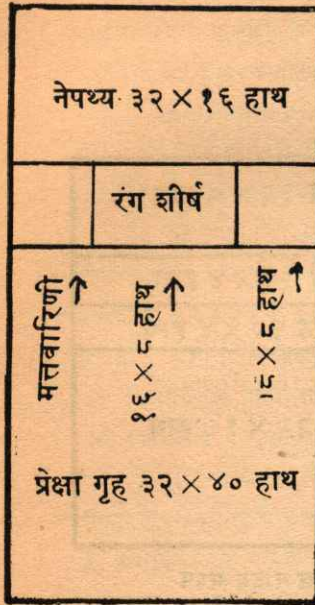 नेपथ्य ३२×१६ हाथ
रंग शीर्ष
मत्तवारिणी →
१६×८ हाथ →
८×८ हाथ →
प्रेक्षा गृह ३२×४० हाथ